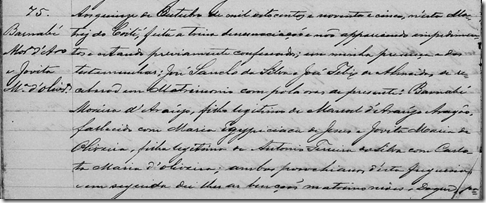 75.
Barnabé
Mor.ª d'Arº
e Jovita
Mª d'Olivrª
Aos quinze de Outubro de mil oito centos e noventa e cinco, nesta Ma-
triz do Coité, feita a trina denunciações não apparecendo impedimen-
tos, estando previamente confessados; em minha presença e das
testemunhas: José Sancho da Silva e José Felix de Almeida, se re-
ceberão em Matrimonio com palavras de presente: Barnabé
Moreira d'Araujo, filho legitimo de Manoel d'Araujo Aragão,
fallecido com Maria Egypciaca de Jesus e Jovita Maria de
Oliveira, filha legitima de Antonio Pereira da Silva com Carlo-
ta Maria d'Oliveira; ambos parochianos d'esta freguesia
e em seguida dei-lhes as benções matrimoniaes. Do que, pª